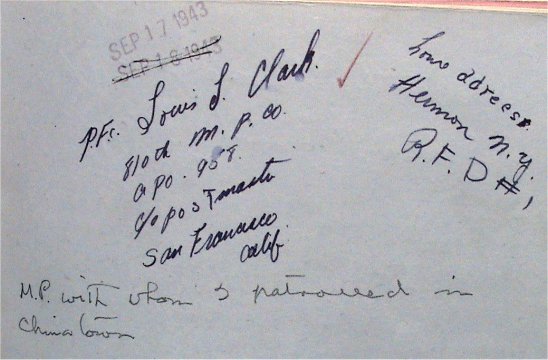 SEP 17 1943
SEP 18 1943
P.Fc. Louis L. Clark.
810th M. P. Co.
apo. 958.
c/o postmaster
San Francisco
Calif.
home address.
Hermon N.Y.
R.F.D #1
M.P. with whom I patrolled in
Chinatown